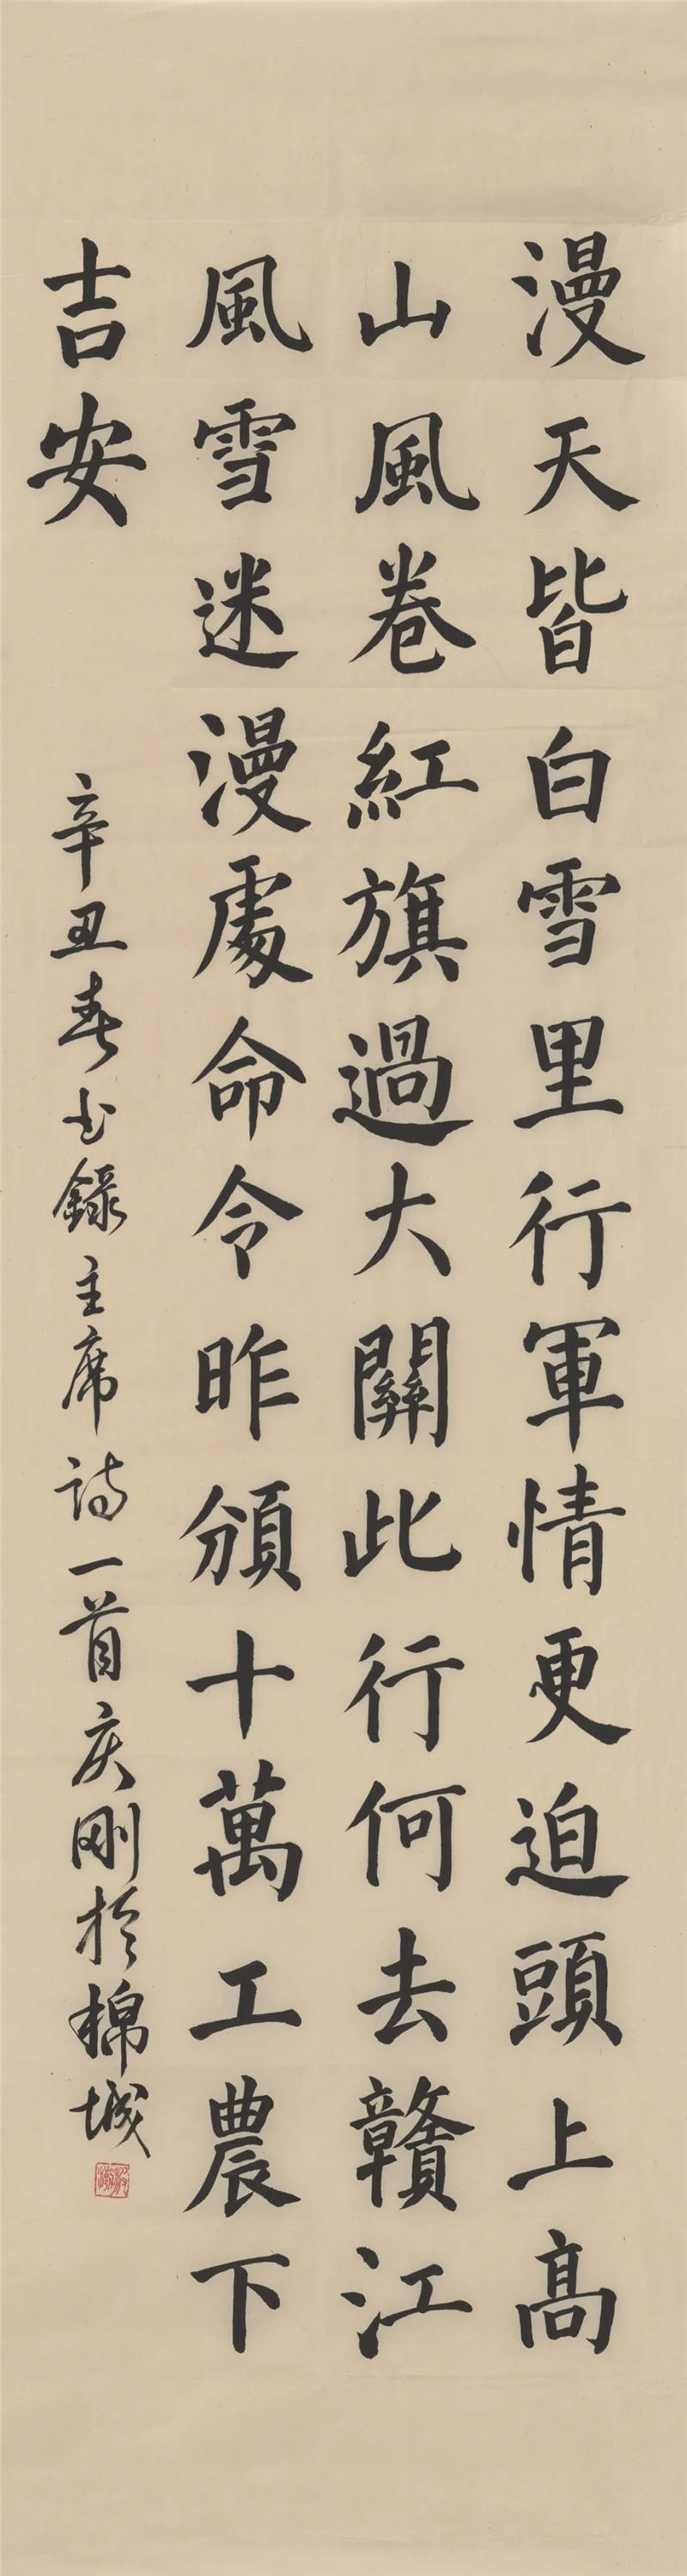 漫天皆白雪里行軍情更迫頭上高
山風卷紅旗過大關此行何去贛江
風雪迷漫處命令昨頒十萬工農下
吉安
辛丑春书錄主席诗一首庆刚於棉城